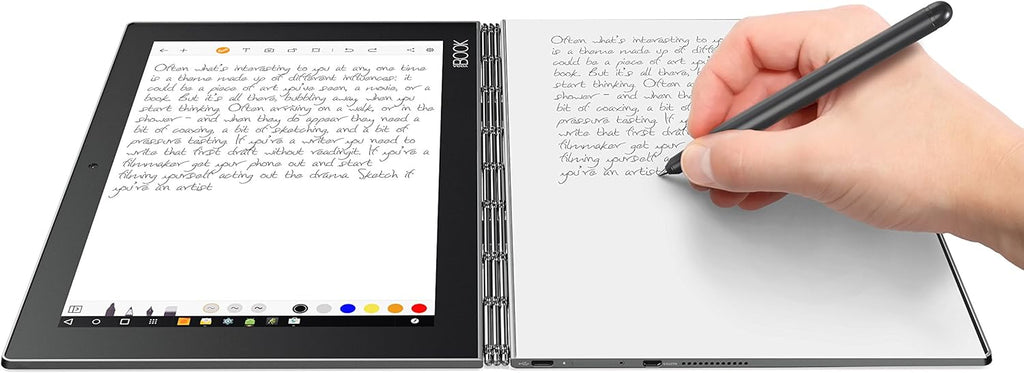 YOGA BOOK
Often what's interesting to you at any one time
is a theme made up of different influences: it
could be a piece of art you've seen, a movie, or a
book. But it's all there, bubbling away when you
start thinking. Often arriving on a walk, or in the
shower - and when they do appear they need a
bit of coaxing, a bit of sketching, and a bit of
pressure testing. If you're a writer you need to
write that first draft without readingit. If you're a
filmmaker get your phone out and start
filming yourself acting out the drama. Sketch if
you're an artist
Often what's interesting to yo
is a theme made up of
could be a piece of art you
book. But it's all there,
start thinking. Often
shower - and when
bit of coaxing, a bit
pressure testing. If
write that first draft
filmmaker get your
filming yourself
you're an artist